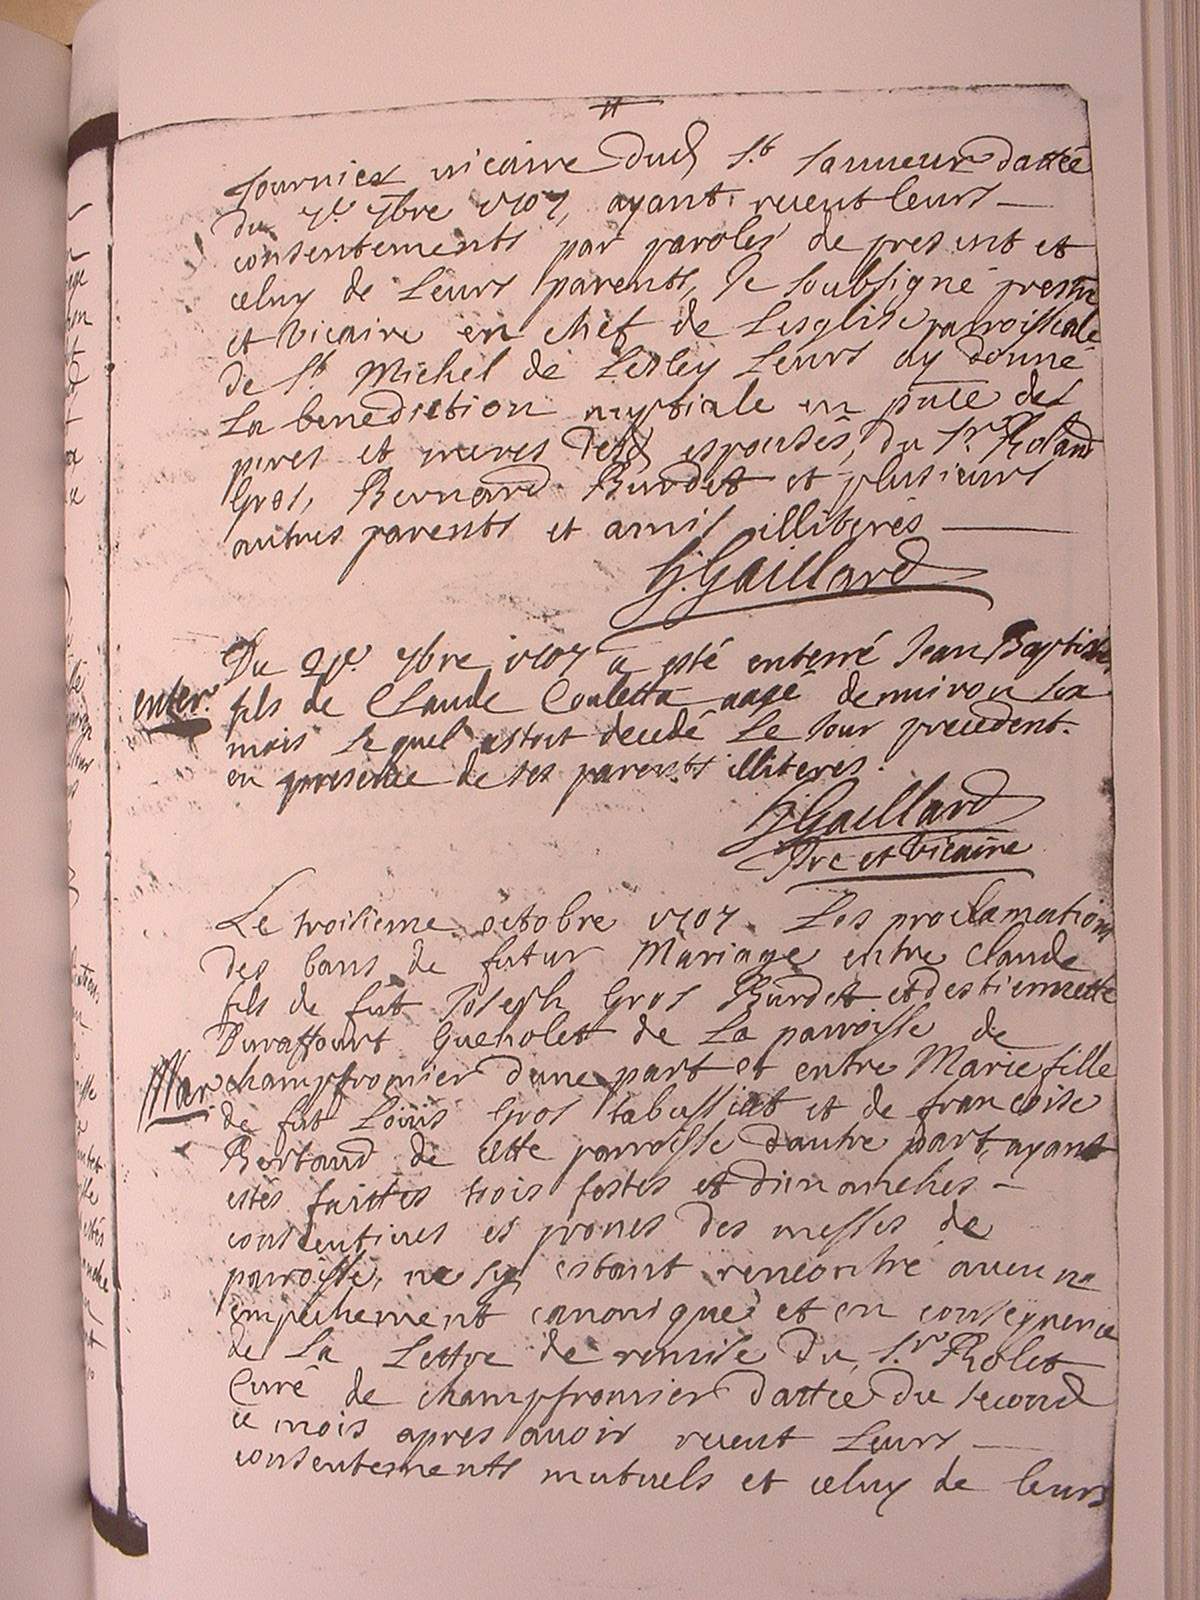 fournier vicaire dud St sauueur dattée
du 7bre 1707, ayant receut leurs —
consentements par paroles de present et
celuy de Leurs parents, Je soubsigné prestre
et vicaire en chef de Lesglise parroissiale
de St Michel de Lesley Leurs ay donne
La benediction nuptiale en pnce des
peres et meres desd espousés, du Sr Roland
Gros, Bernard Burdet et plusieurs
autres parents et amis illiterés —
G. Gaillard
Du 7bre 1707 a esté enterré Jean Baptiste
enter.
fils de Claude Couletta aagé denuiron six
mois lequel estoit decedé Le Jour precedent.
en presence de ses parents illiteres.
G Gaillard
Pre et vicaire
Le troisieme octobre 1707 Les proclamations
des bans de futur Mariage entre Claude
fils de fut Joseph Gros Burdett et destiennette
Duraffourt Guenolet de La parroisse de
Mar
champfromier dune part et entre Marie fille
de fut Louis Gros tabussiet et de francoise
Bertand de cette parroisse dautre part, ayant
estés faittes trois festes et dimanches —
consecutiues es prones des messes de
parroisse, ne sy estant rencontré aucun
empechement canonique et en consequence
de La Lettre de remise du Sr Rolet
Curé de champfromier dattée du second
ce mois apres auoir receut Leurs —
consentements mutuels et celuy de leurs